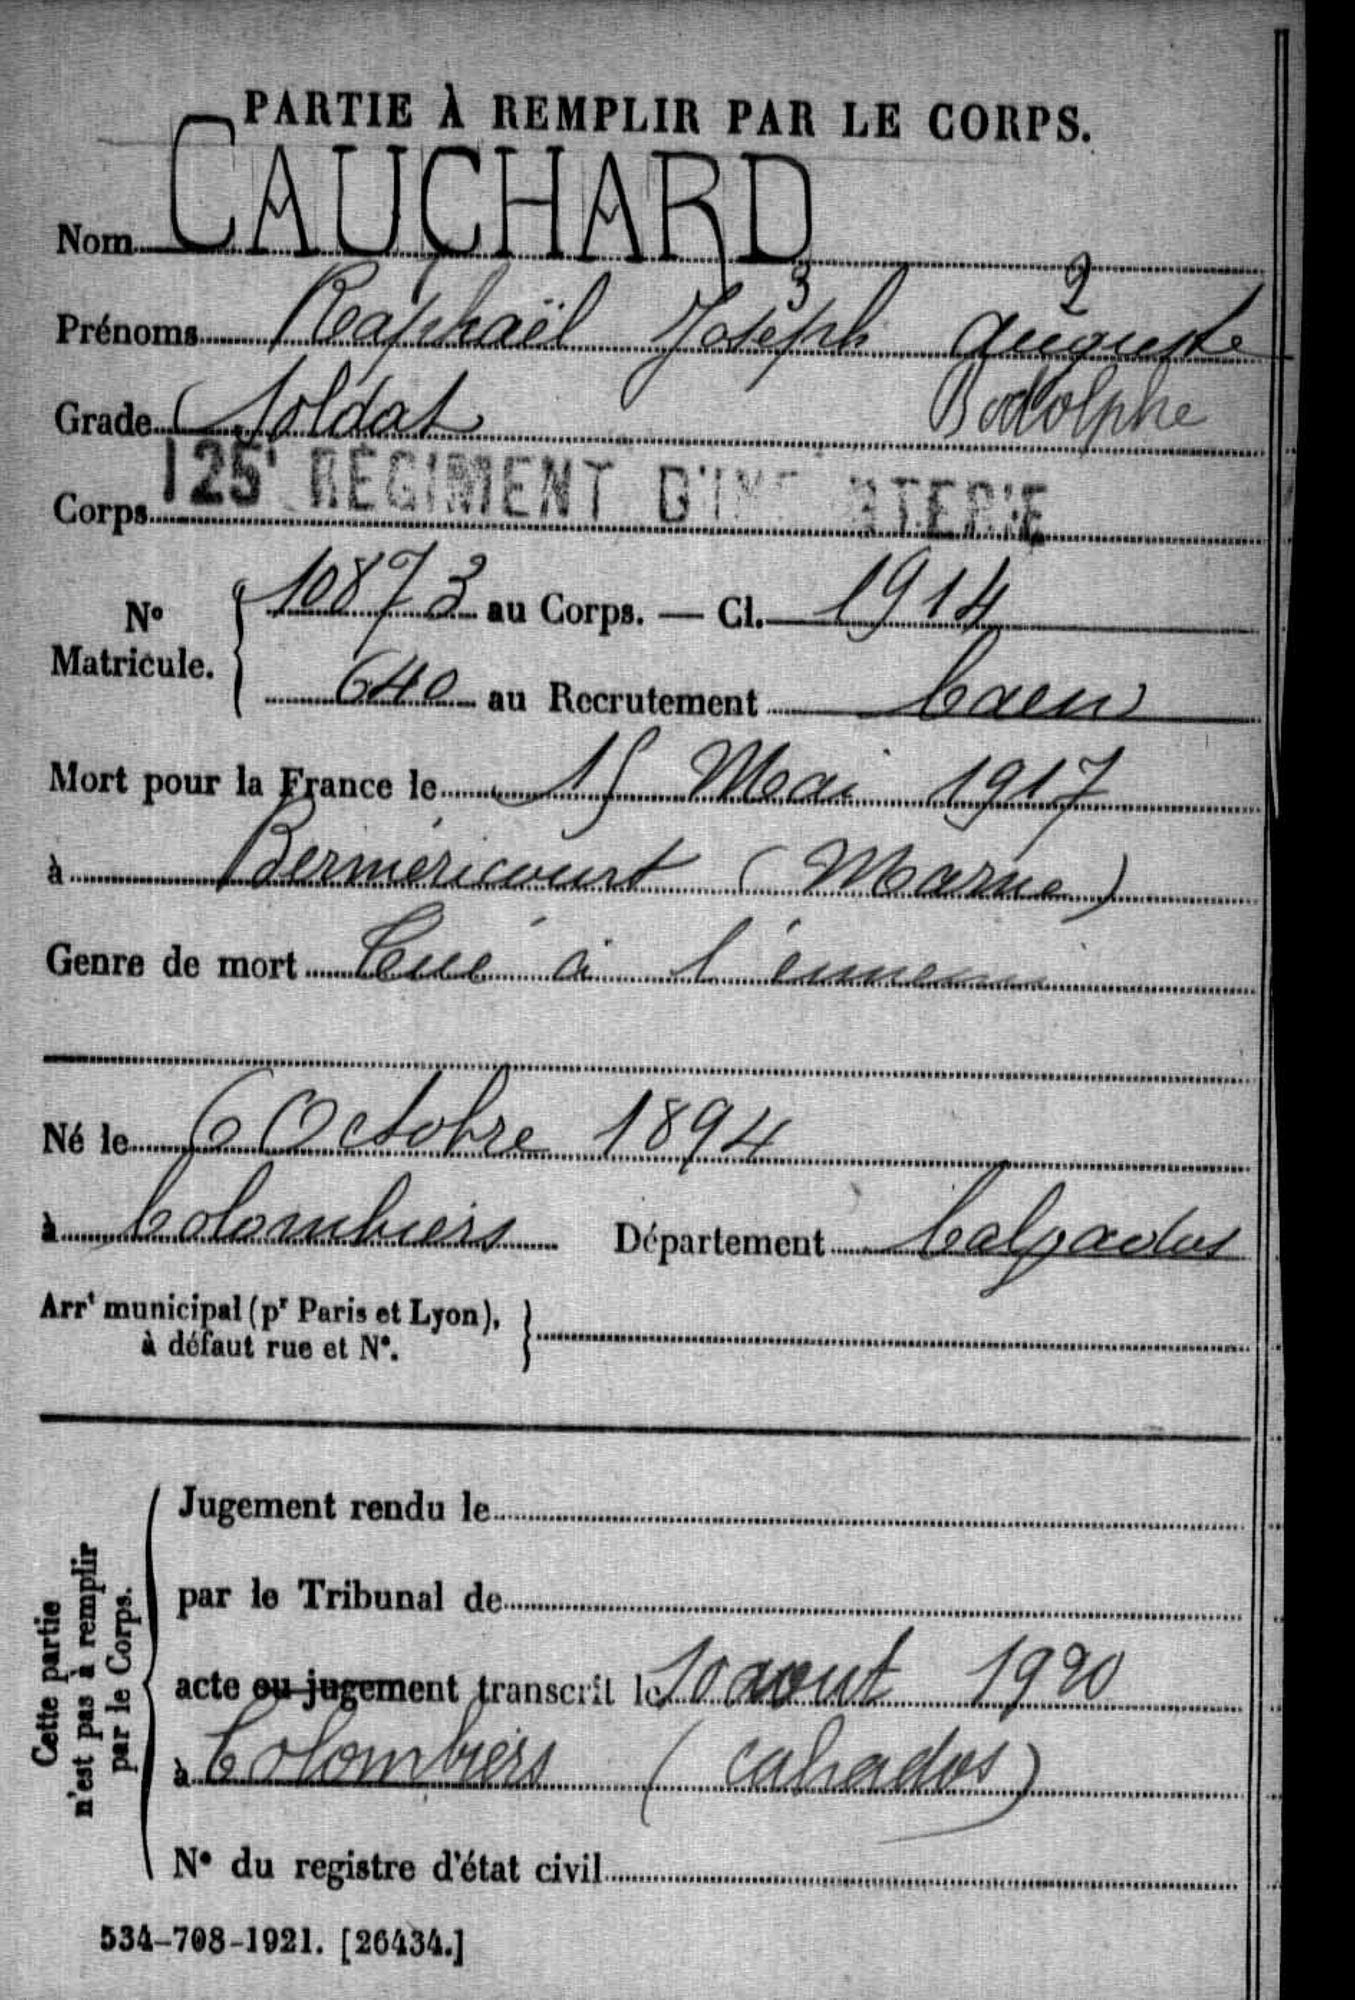 PARTIE À REMPLIR PAR LE CORPS.
Nom CAUCHARD
3 2
Prénoms Raphaël Joseph Auguste
Rodolphe
Grade Soldat
Corps 125e RÉGIMENT D'INFANTERIE
No Matricule. { 10873 au Corps. — Cl. 1914
640 au Recrutement Caen
Mort pour la France le 15 Mai 1917
à Berméricourt (Marne)
Genre de mort Tué à l'ennemi
Né le 6 Octobre 1894
à Colombiers Département Calvados
Arrt municipal (pr Paris et Lyon), }
à défaut rue et No.
Cette partie
n'est pas à remplir
par le Corps.
Jugement rendu le
par le Tribunal de
acte ou jugement transcrit le 10 aout 1920
à Colombiers (Calvados)
No du registre d'état civil
534-708-1921. [26434.]